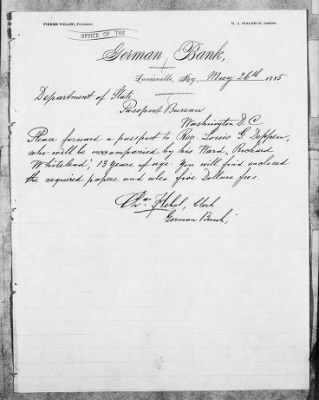 OFFICE OF THE
German Bank,
Louisville, Ky. May 26th 1895
Department of State
Passport Bureau
Washington D.C.
Please forward a passport to Rev. Louis G. Deppen,
who will be accompanied by his Ward, Richard
Whitehead, 13 years of age. You will find enclosed
the required papers and also five Dollars fees
Clerk
German Bank,